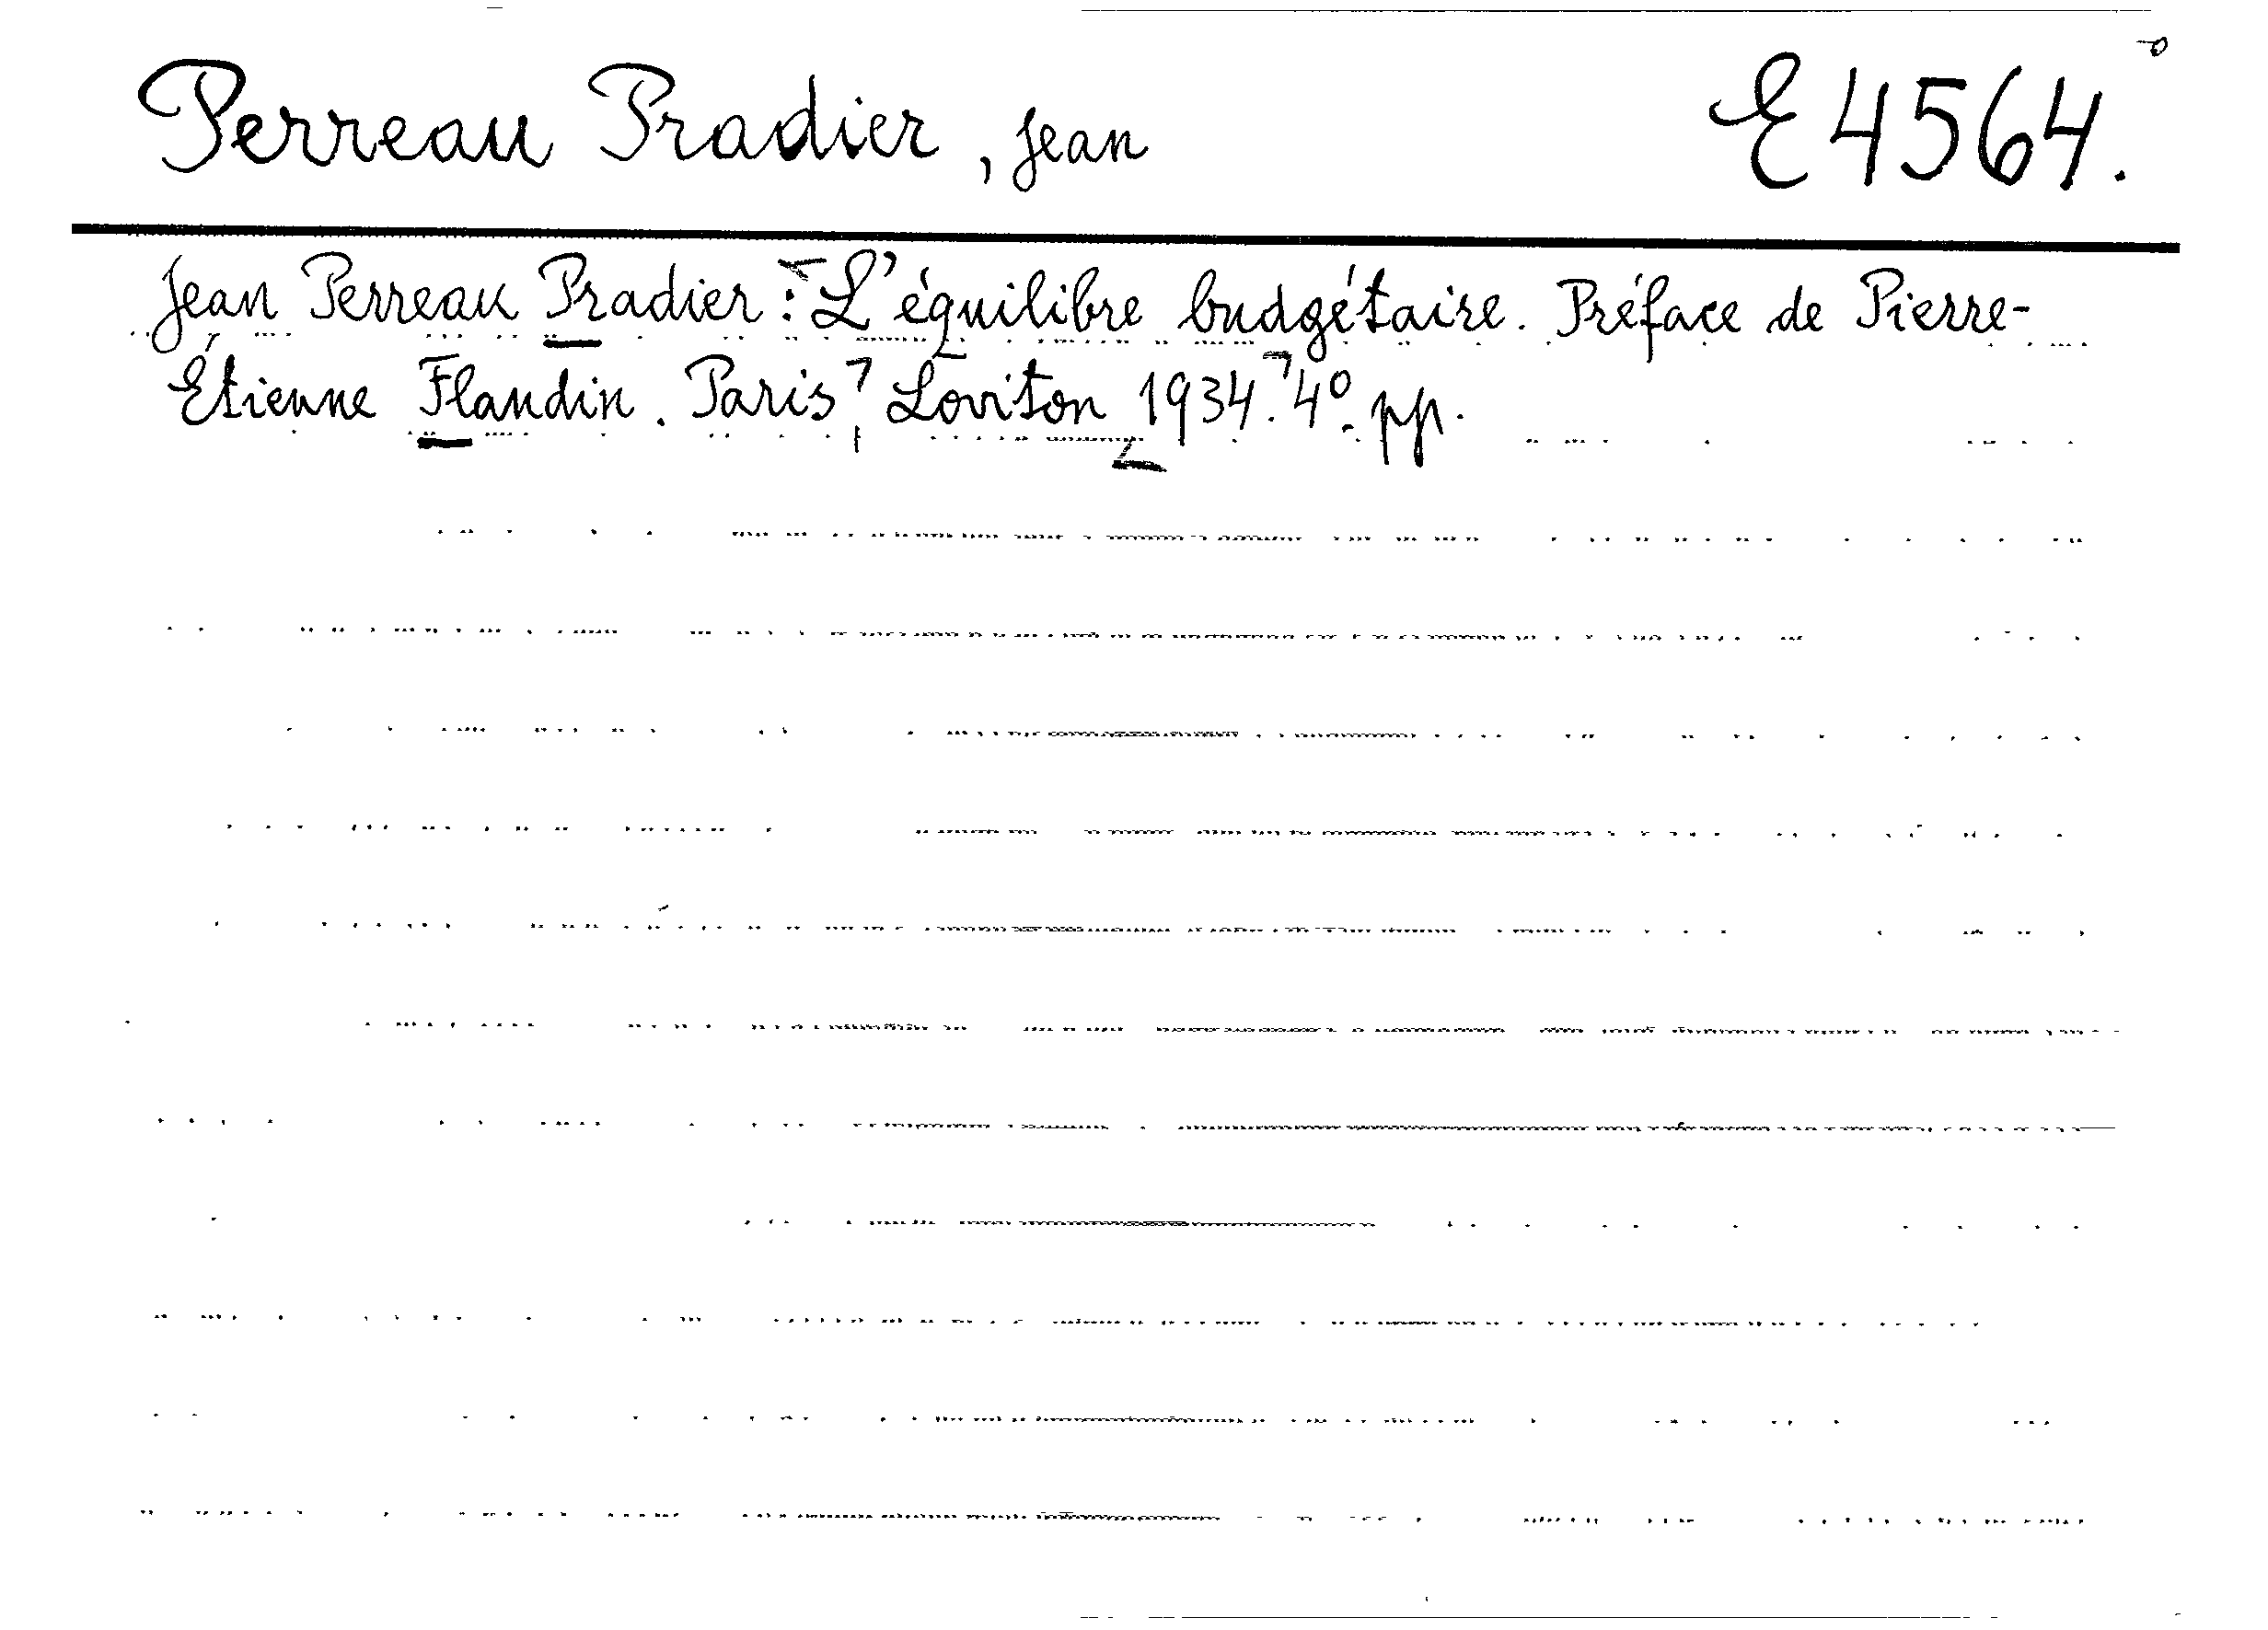 Perreau Pradier, Jean E 4564.
Jean Perreau Pradier: L'équilibre budgétaire. Préface de Pierre-
Étienne Flandin. Paris, Loviton 1934. 4º. pp.